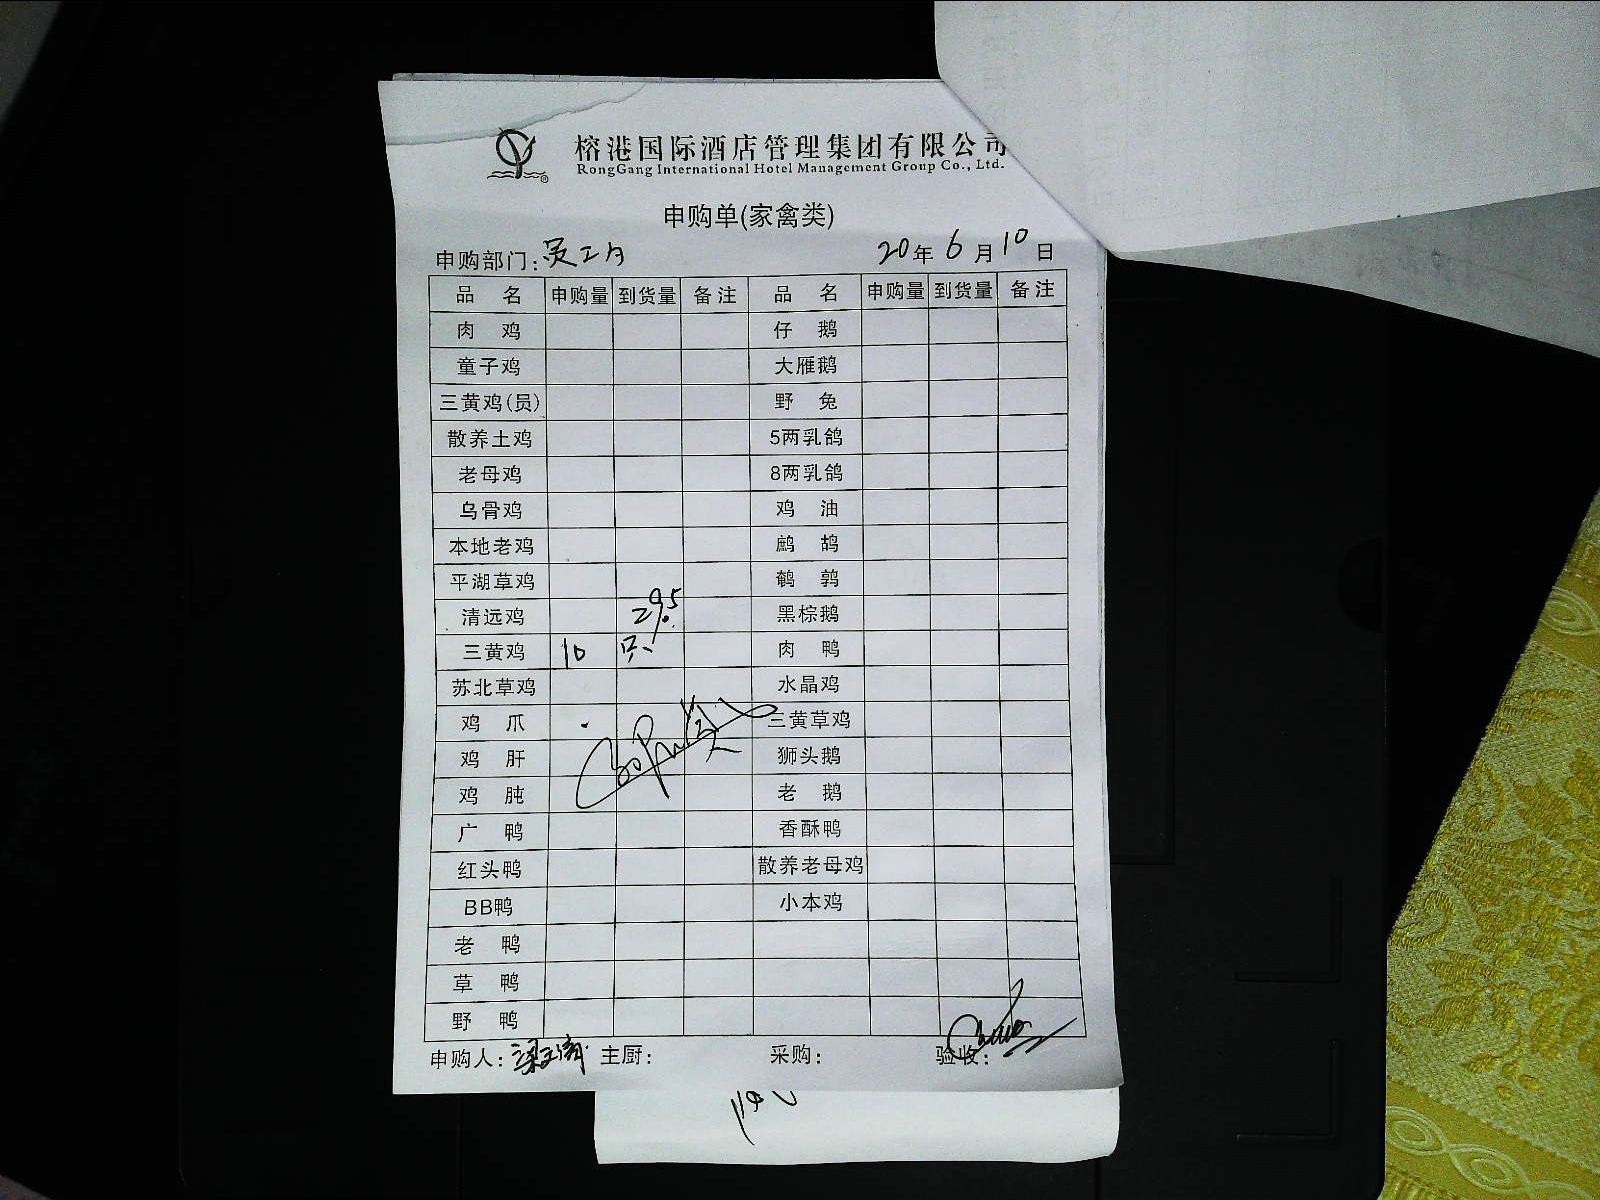 榕港国际酒店管理集团有限公司
RongGang International Hotel Management Group Co., Ltd.
申购单(家禽类)
申购部门: 20年 6月 10日
品 名 申购量 到货量 备注 品 名 申购量 到货量 备注
肉 鸡 仔 鹅
童子鸡 大雁鹅
三黄鸡(员) 野 兔
散养土鸡 5两乳鸽
老母鸡 8两乳鸽
乌骨鸡 鸡 油
本地老鸡 鹧 鸪
平湖草鸡 鹌 鹑
清远鸡 29.5 黑棕鹅
三黄鸡 10 只 肉 鸭
苏北草鸡 水晶鸡
鸡 爪 三黄草鸡
鸡 肝 狮头鹅
鸡 肫 老 鹅
广 鸭 香酥鸭
红头鸭 散养老母鸡
BB鸭 小本鸡
老 鸭
草 鸭
野 鸭
申购人: 主厨: 采购: 验收: